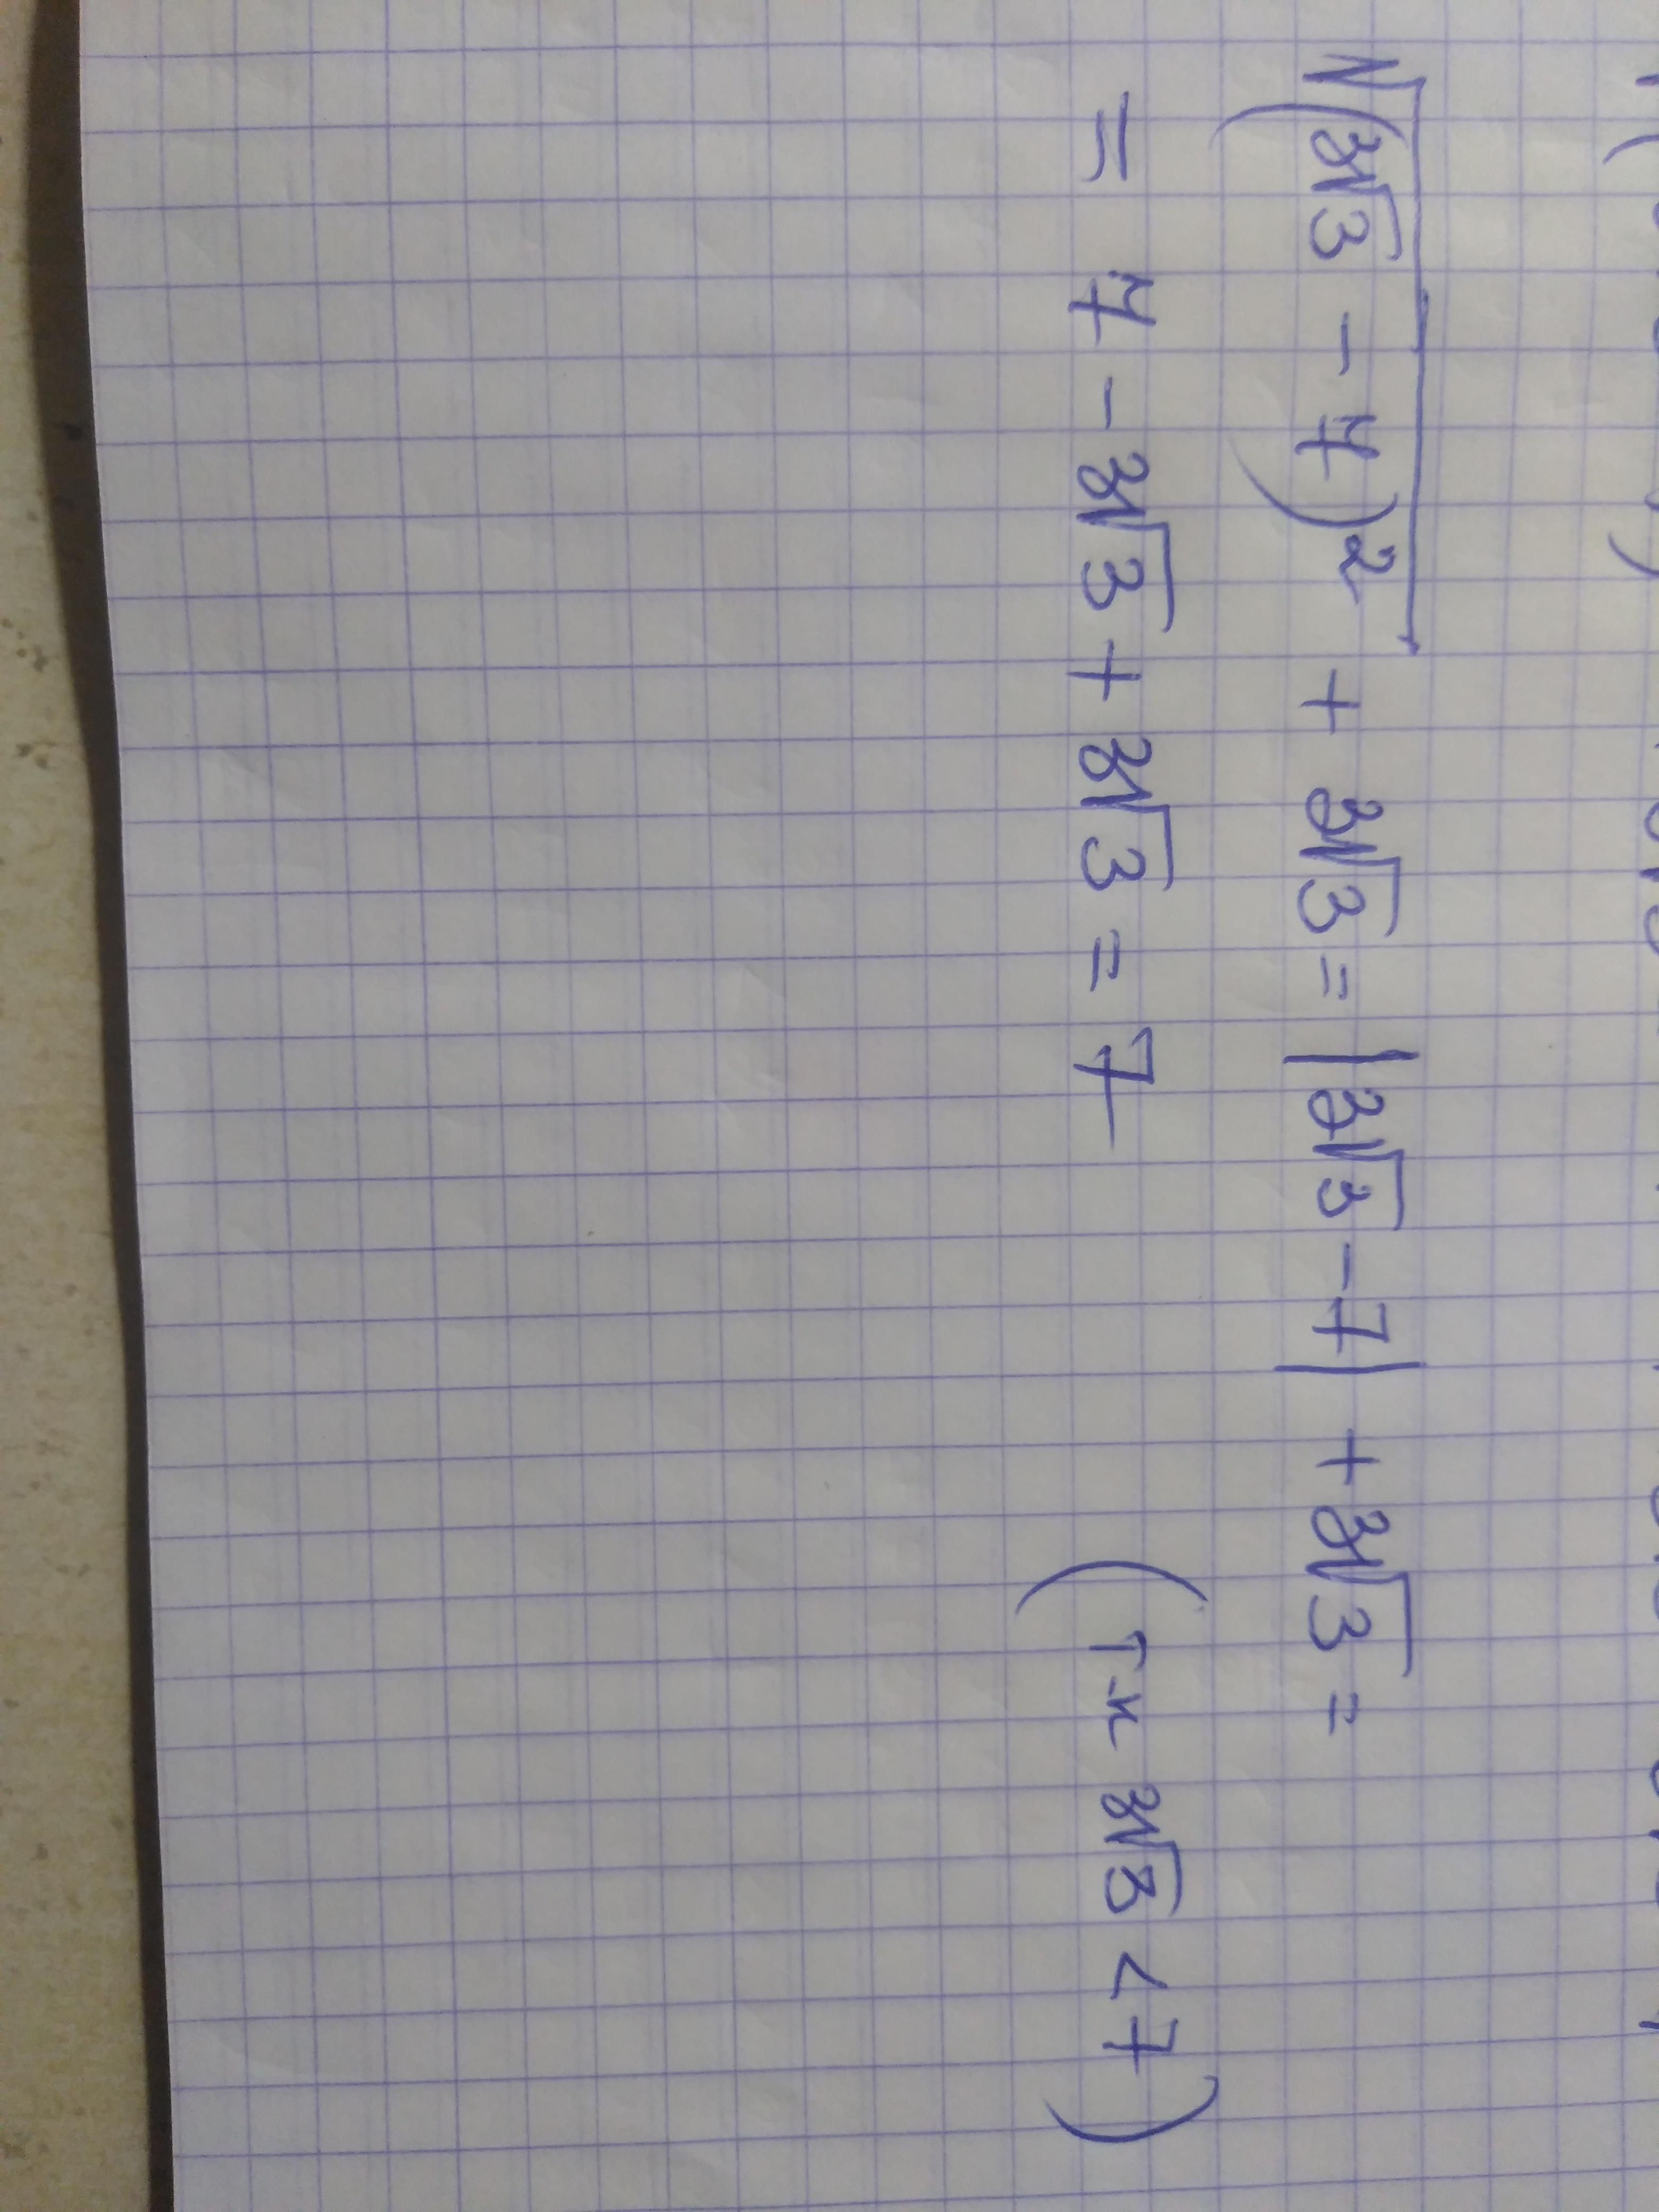 √(3√3 - 7)² + 3√3 = |3√3 - 7| + 3√3 =
= 7 - 3√3 + 3√3 = 7 (т-к 3√3 < 7)